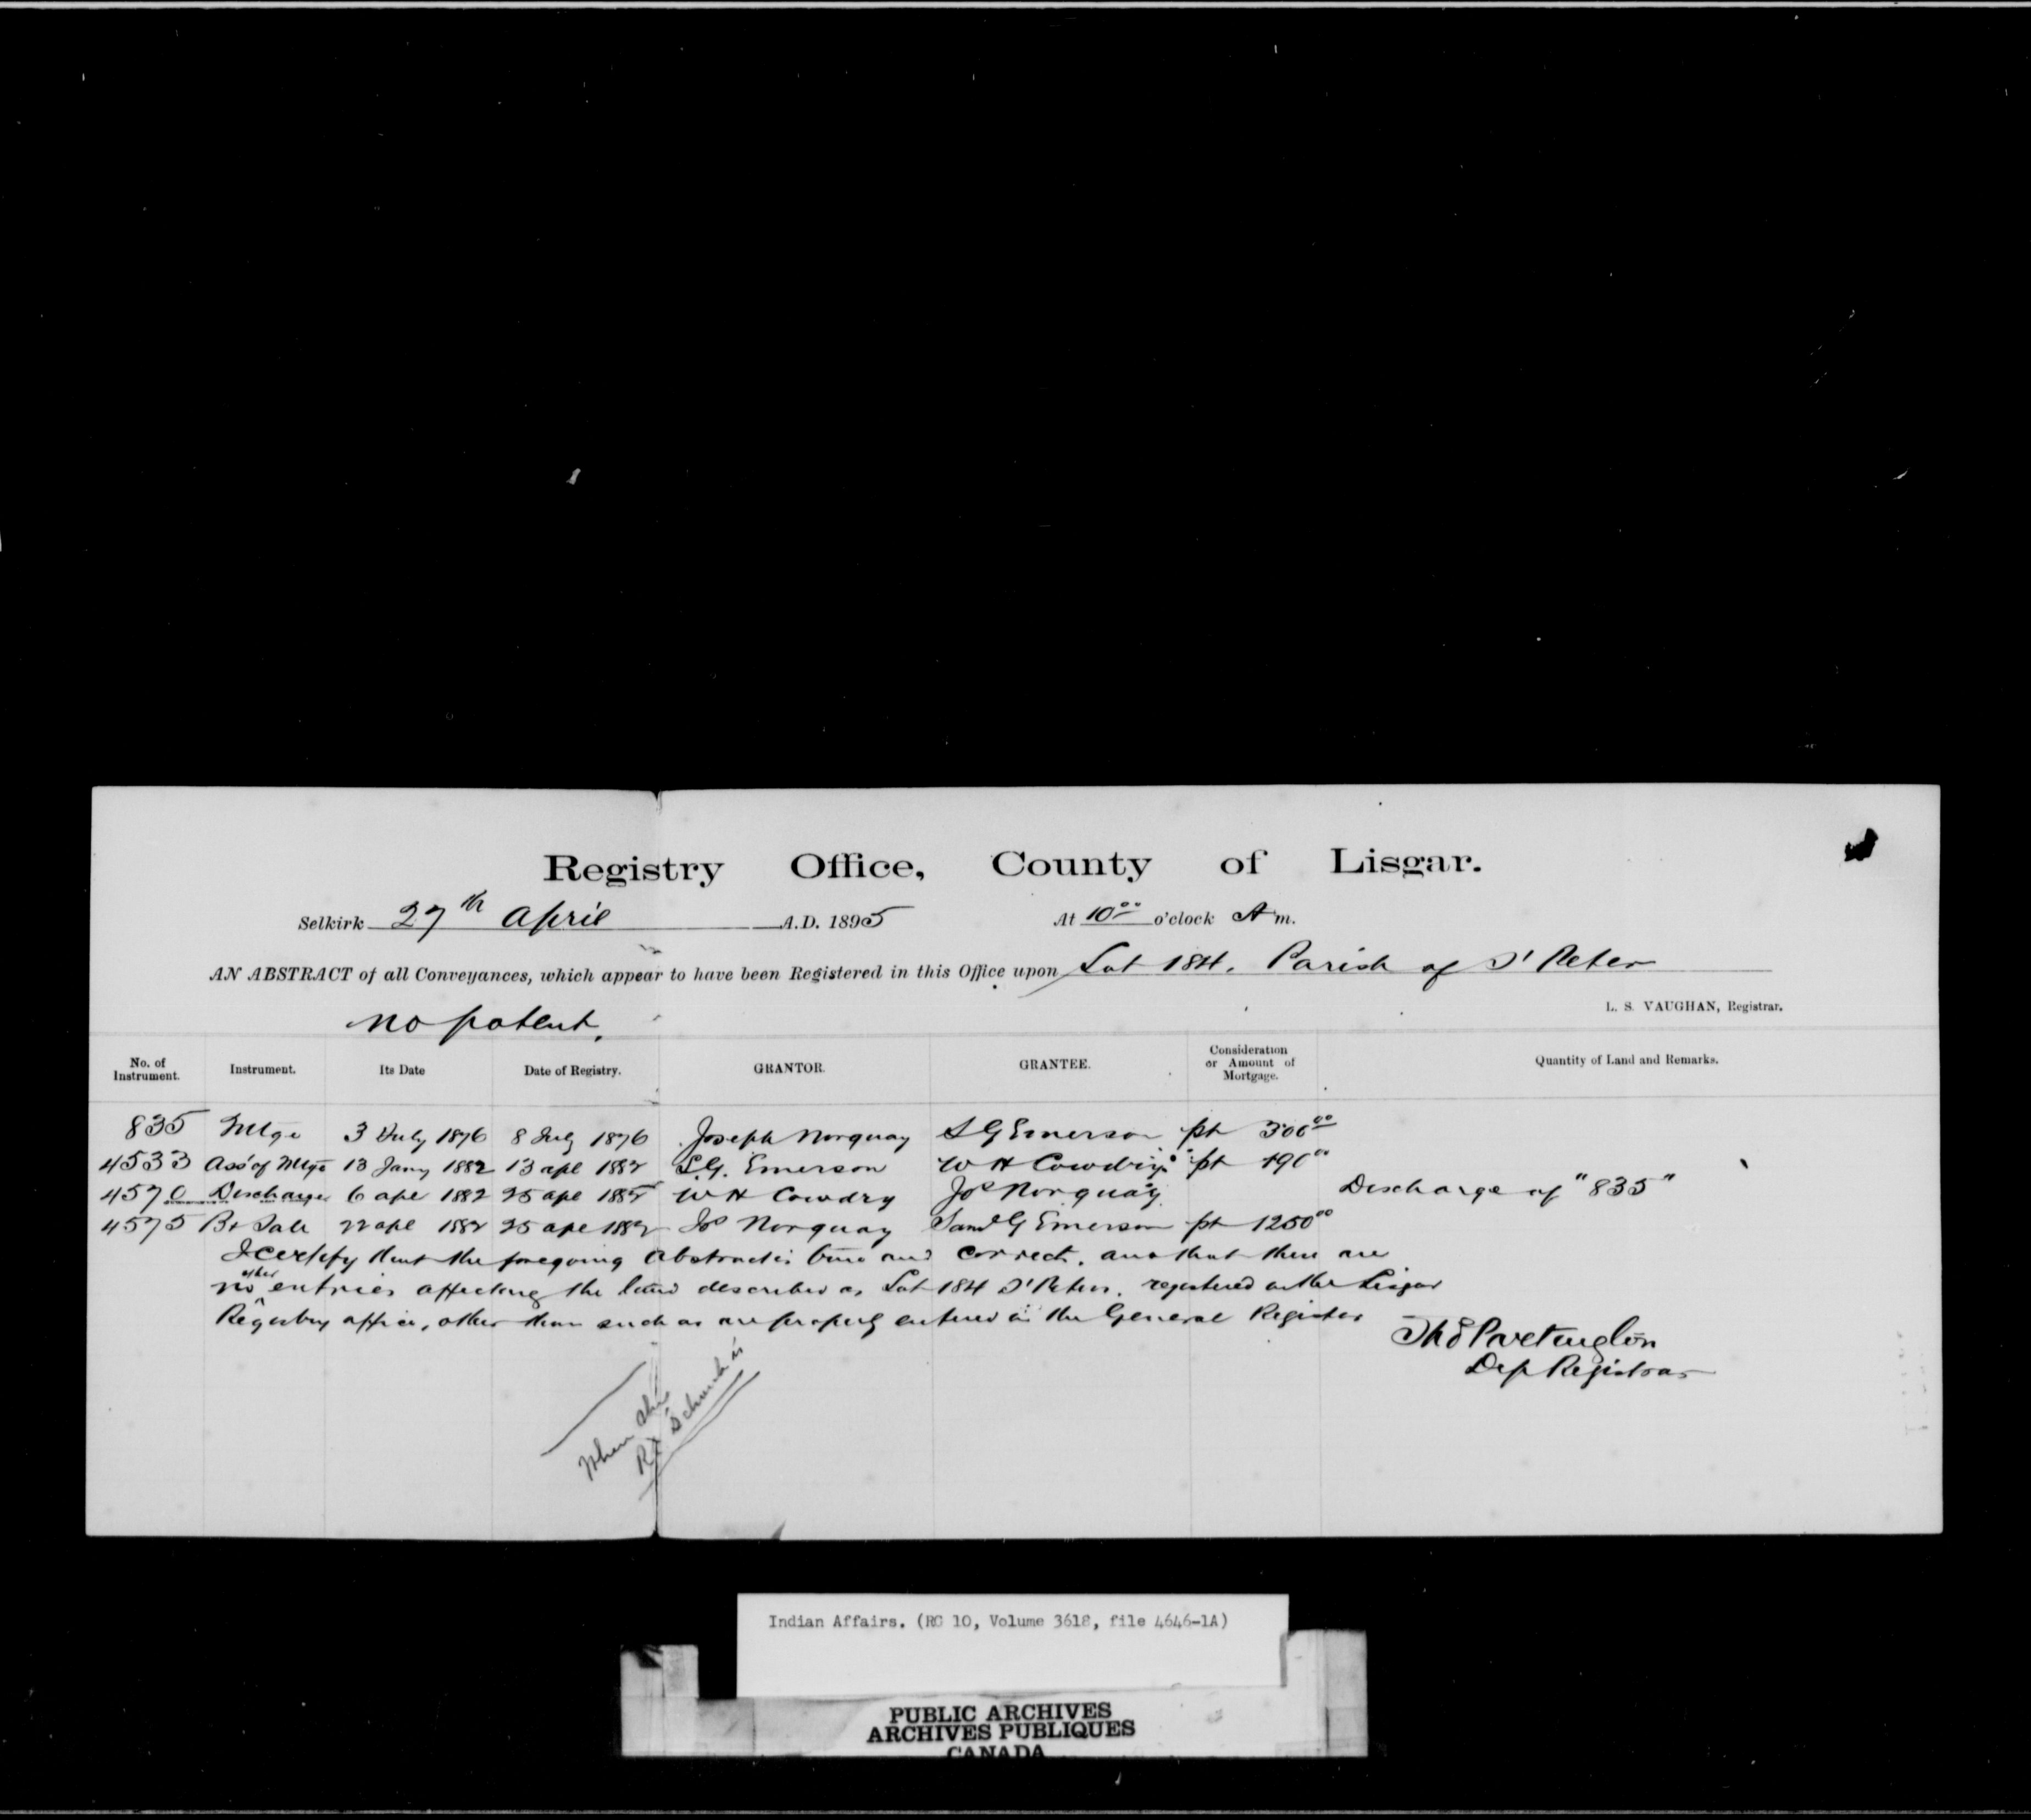 Registry Office, County of Lisgar.
Selkirk 27th April A.D. 1895 At 10.00 o'clock A m.
AN ABSTRACT of all Conveyances, which appear to have been Registered in this Office upon Lot 184. Parish of St Peter
L. S. VAUGHAN, Registrar.
no patent.
No. of Instrument. Instrument. Its Date Date of Registry. GRANTOR. GRANTEE. Consideration or Amount of Mortgage. Quantity of Land and Remarks.
835 Mtge 3 July 1876 8 July 1876 Joseph Norquay S G Emerson pt 300.00
4533 Ass of Mtge 13 Jany 1882 13 apl 1882 S.G. Emerson W H Cowdry pt 190.00
4570 Discharge 6 apl 1882 25 apl 1882 W H Cowdry Jos Norquay Discharge of "835"
4575 B & Sale 22 apl 1882 25 apl 1882 Jos Norquay Saml G Emerson pt 1250.00
I certify that the foregoing abstract is true and correct. and that there are
no other entries affecting the land described as Lot 184 St Peters. registered in the Lisgar
Registry office, other than such as are properly entered in the General Register
Dep Registrar
When
Indian Affairs. (RG 10, Volume 3618, file 4646-1A)
PUBLIC ARCHIVES
ARCHIVES PUBLIQUES
CANADA